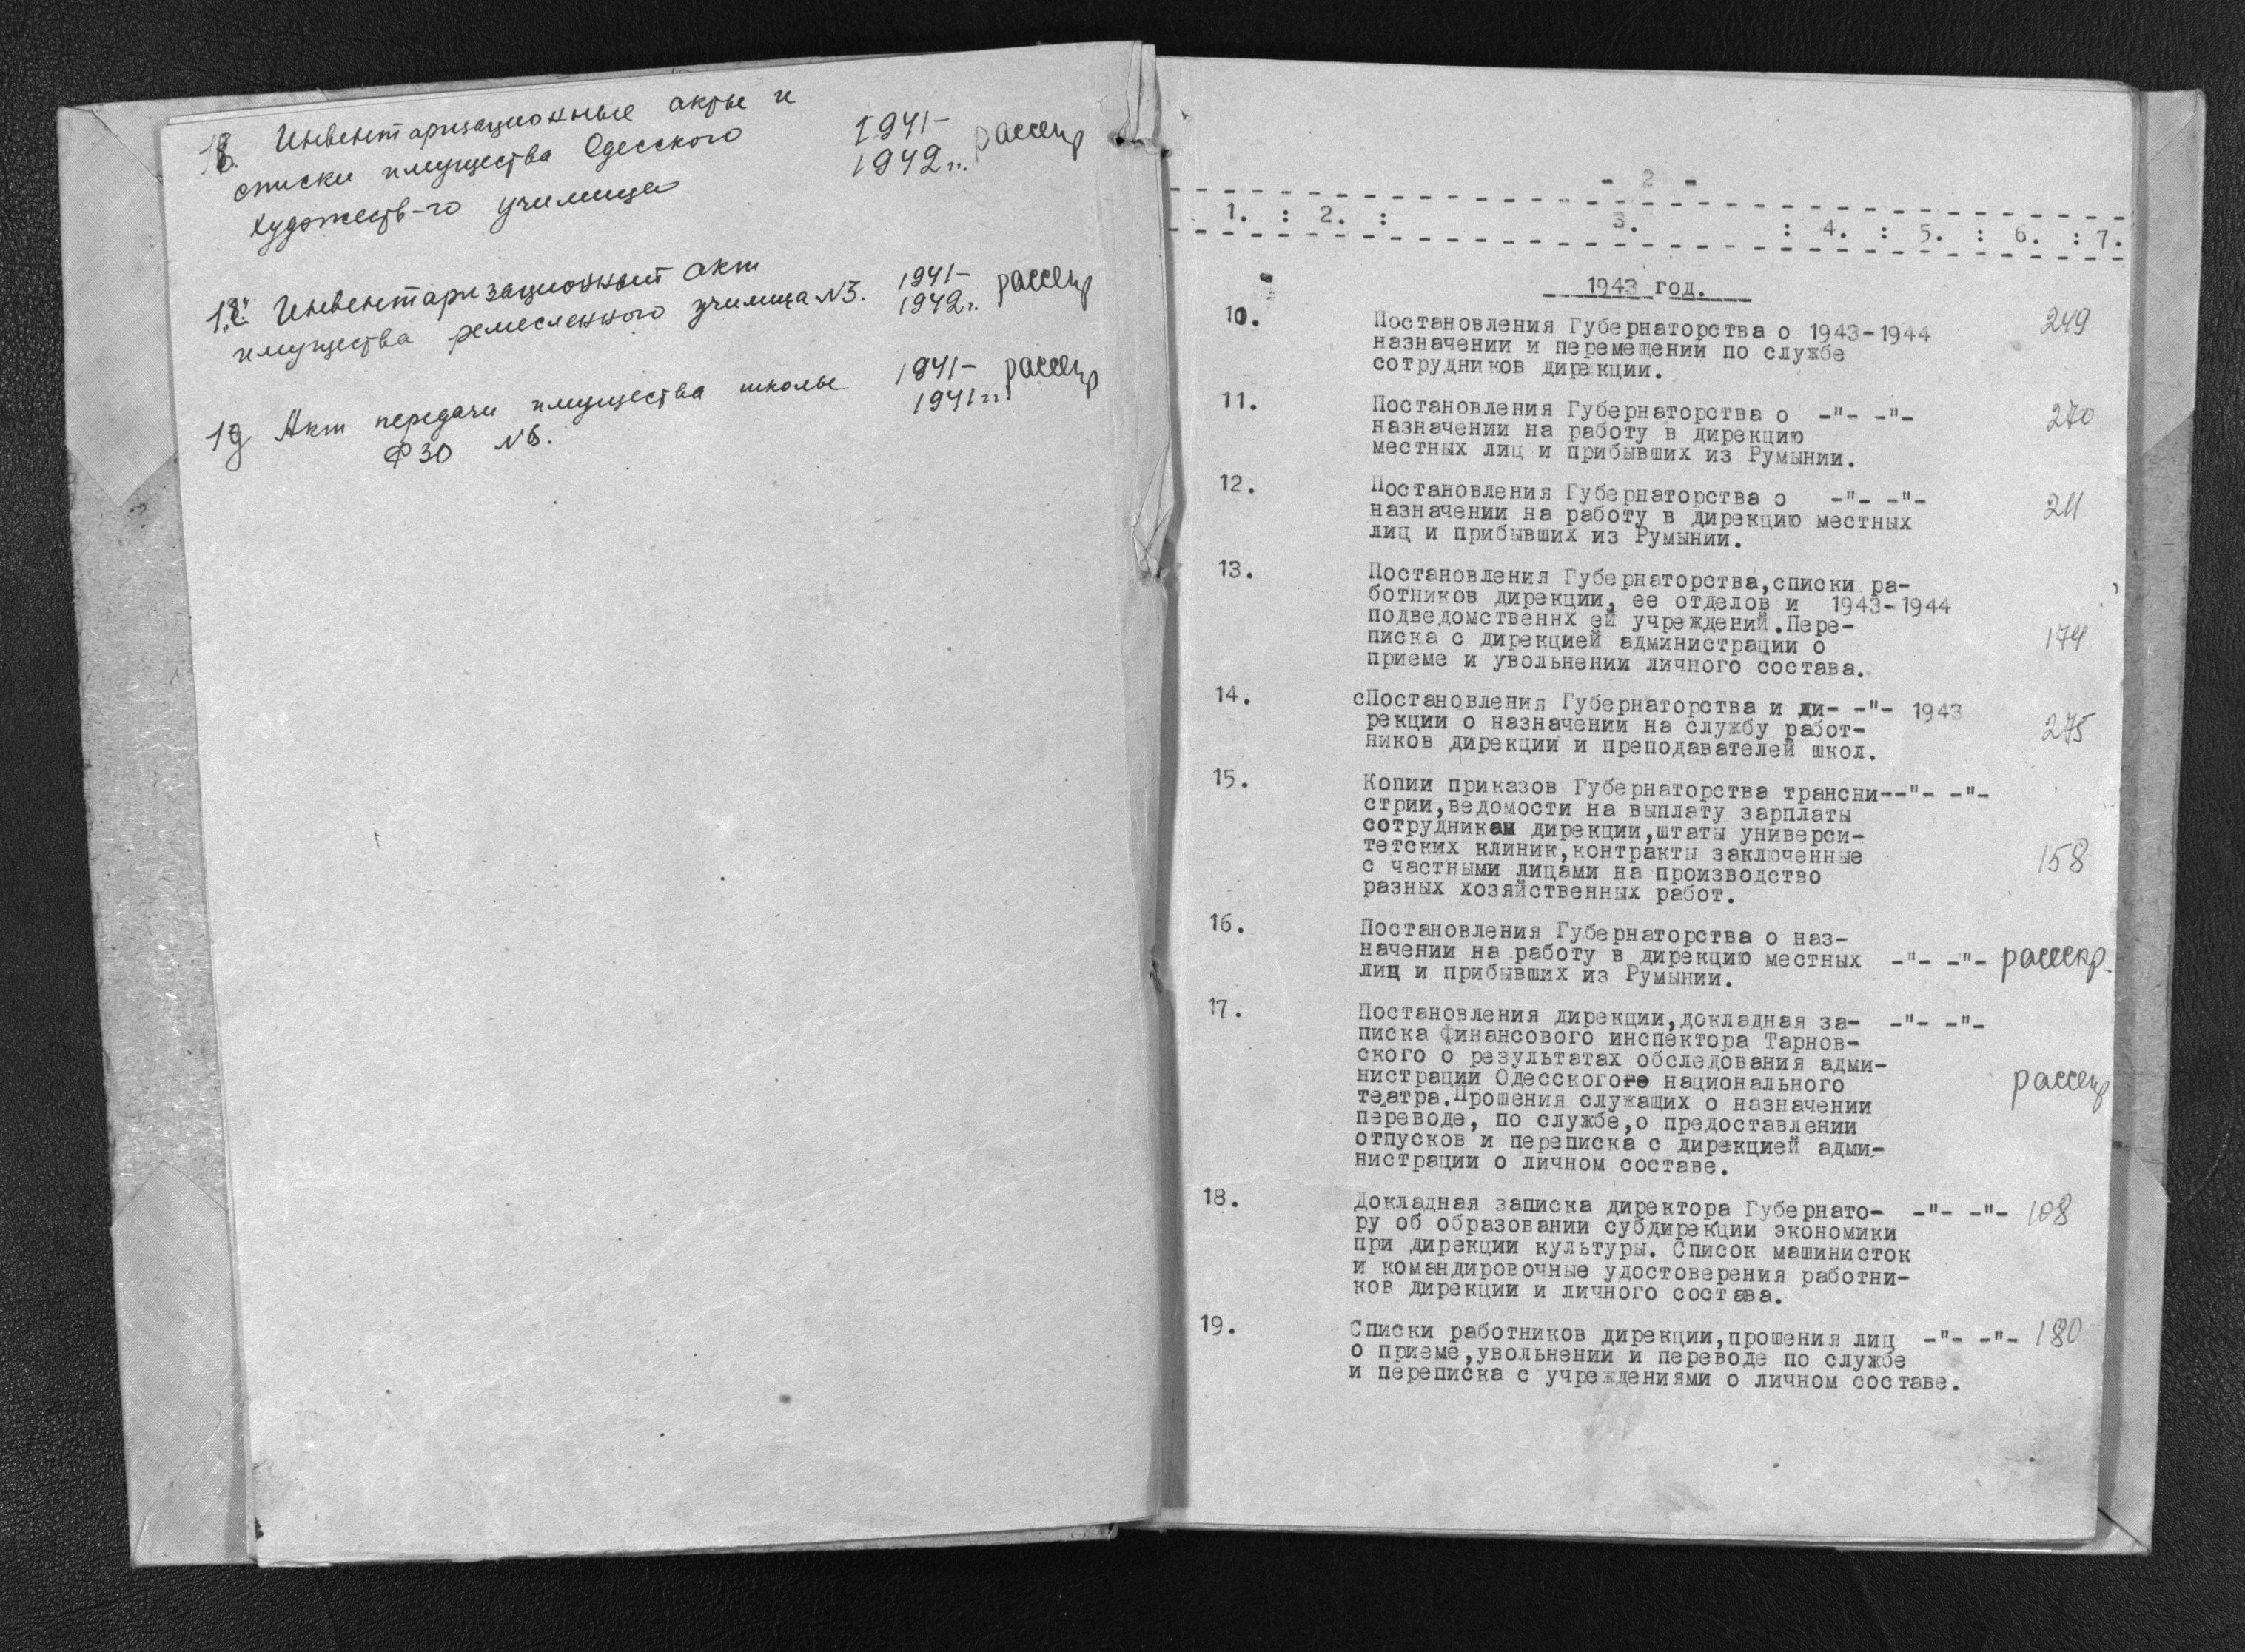 Инвентаризационные акты и
списки имущества Одесского 1941-
художеств-го училища 1942 гг. рассекр
Инвентаризационный акт 1941- рассекр
имущества ремесленного училища N3. 1942 г.
Акт передачи имущества школы 1941- рассекр
N6. 1941 гг.
Ф 30
- 2 -
1. : 2. : 3. : 4. : 5. : 6. : 7.
1943 год.
10. Постановления Губернаторства о 1943-1944 249
назначении и перемещений по службе
сотрудников дирекции.
11. Постановления Губернаторства о -"- -"- 270
назначении на работу в дирекцию
местных лиц и прибывших из Румынии.
12. Постановления Губернаторства о -"- -"- 211
назначении на работу в дирекцию местных
лиц и прибывших из Румынии.
13. Постановления Губернаторства,списки ра-
ботников дирекции, ее отделов и 1943-1944
подведомственнх ей учреждений.Пере-
писка с дирекцией администрации о 174
приеме и увольнении личного состава.
14. сПостановления Губернаторства и ди- -"- 1943
рекции о назначении на службу работ- 275
ников дирекции и преподавателей школ.
15. Копии приказов Губернаторства трансни--"- -"-
стрии,ведомости на выплату зарплаты
сотрудникам дирекции,штаты универси-
тетских клиник,контракты заключенные 158
с частными лицами на производство
разных хозяйственных работ.
16. Постановления Губернаторства о наз-
начении на работу в дирекцию местных -"- -"- рассекр.
лиц и прибывших из Румынии.
17. Постановления дирекции,докладная за- -"- -"-
писка финансового инспектора Тарнов-
ского о результатах обследования адми-
нистрации Одесскогоге национального рассекр
театра.Прошения служащих о назначении
переводе, по службе,о предоставлении
отпусков и переписка с дирекцией адми-
нистрации о личном составе.
18. Докладная записка директора Губернато- -"- -"- 108
ру об образовании субдирекции экономики
при дирекции культуры. Список машинисток
и командировочные удостоверения работни-
ков дирекции и личного состава.
19. Списки работников дирекции,прошения лиц -"- -"- 180
о приеме,увольнении и переводе по службе
и переписка с учреждениями о личном составе.